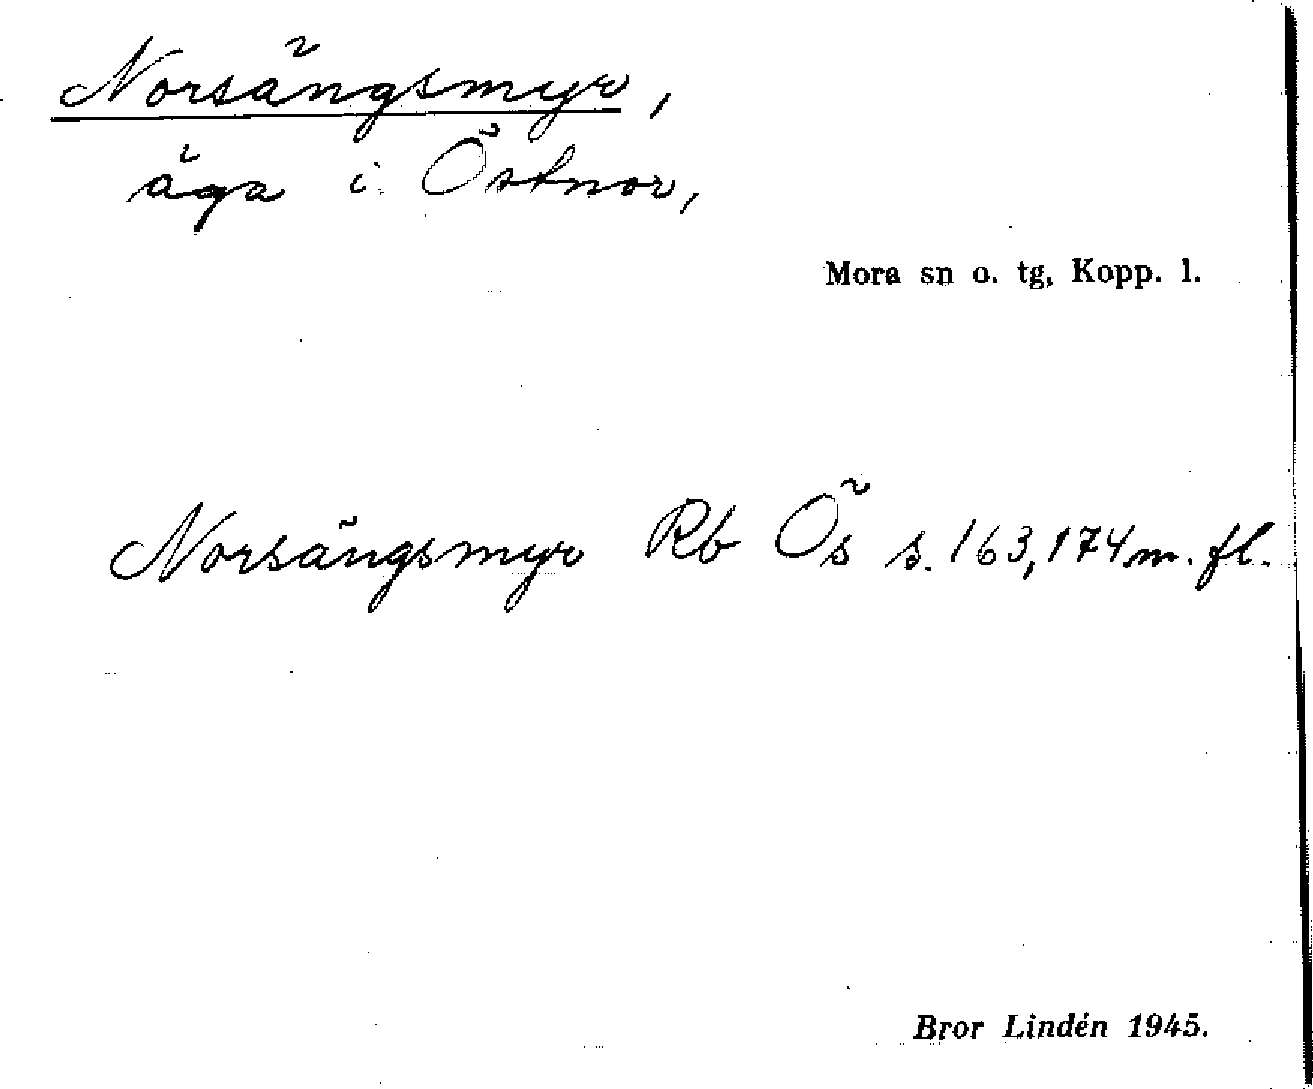 Norsängsmyr,
äga i Östnor,
Mora sn o. tg, Kopp. l.
Norsängsmyr Rb Ös s. 163, 174 m. fl.
Bror Lindén 1945.